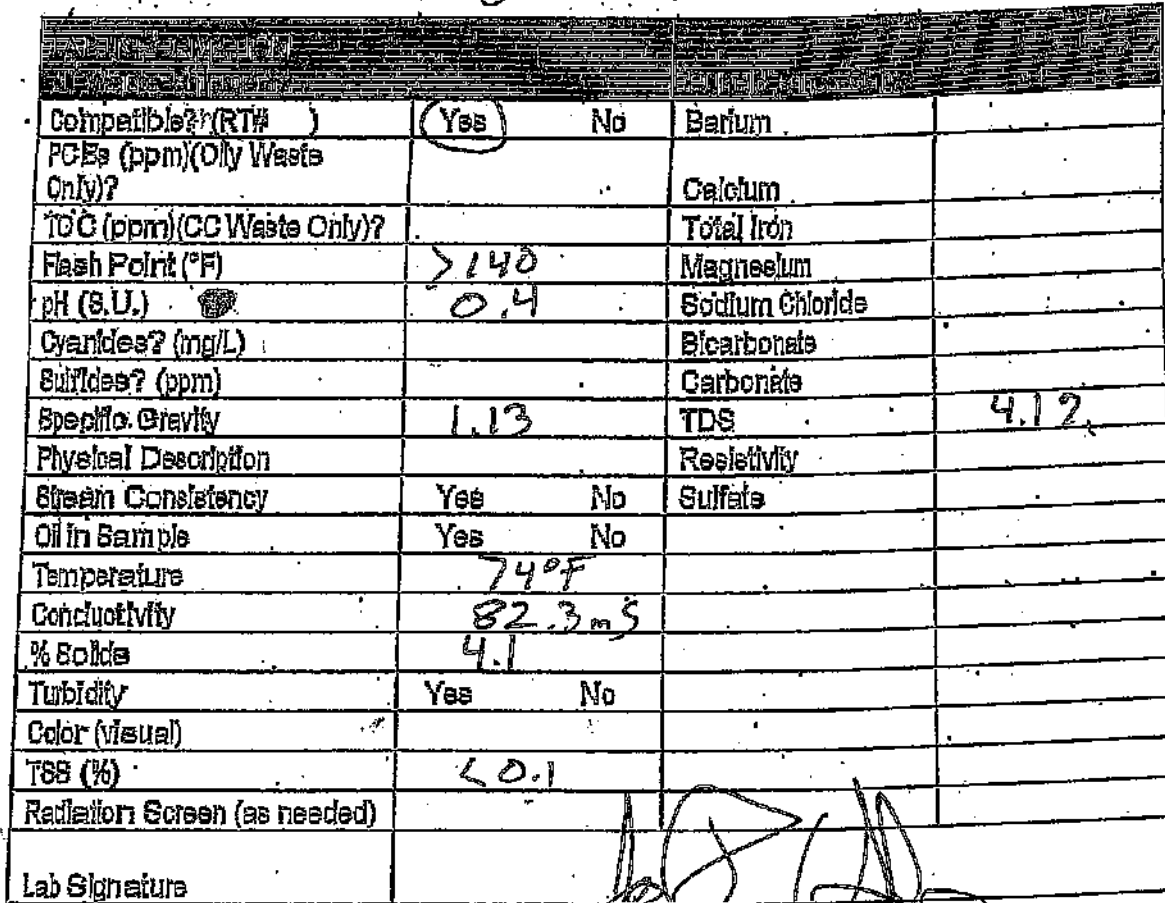 Compatible? (RT# ) Yes No Barium
PCBs (ppm)(Oily Waste
Only)? Calcium
TOC (ppm)(CC Waste Only)? Total Iron
Flash Point (°F) >140 Magnesium
pH (S.U.) 0.4 Sodium Chloride
Cyanides? (mg/L) Bicarbonate
Sulfides? (ppm) Carbonate
Specific Gravity 1.13 TDS 4.12
Physical Description Resistivity
Stream Consistency Yes No Sulfate
Oil in Sample Yes No
Temperature 74°F
Conductivity 82.3 mS
% Solids 4.1
Turbidity Yes No
Color (visual)
TSS (%) <0.1
Radiation Screen (as needed)
Lab Signature